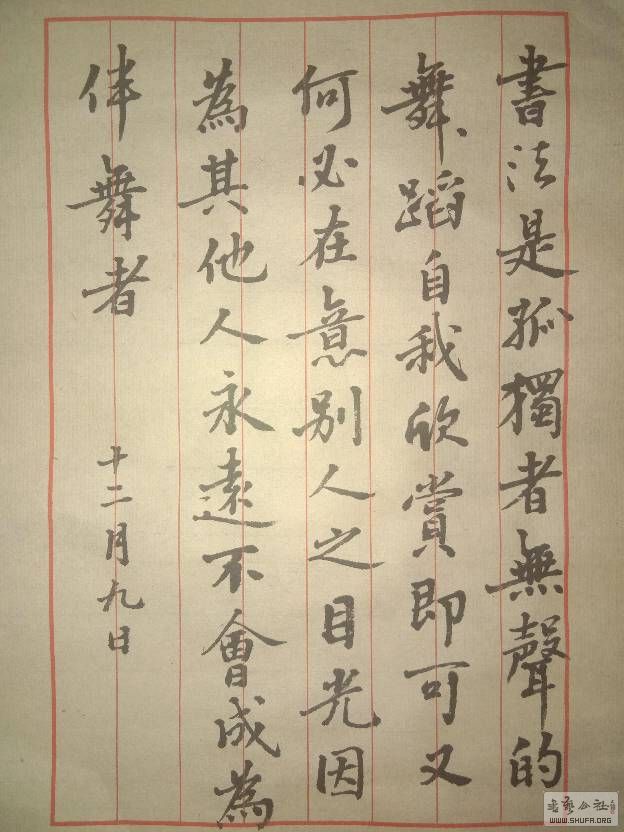 書法是孤獨者無聲的
舞蹈自我欣賞即可又
何必在意别人之目光因
為其他人永遠不會成為
伴舞者
十二月九日
书艺公社
WWW.SHUFA.ORG